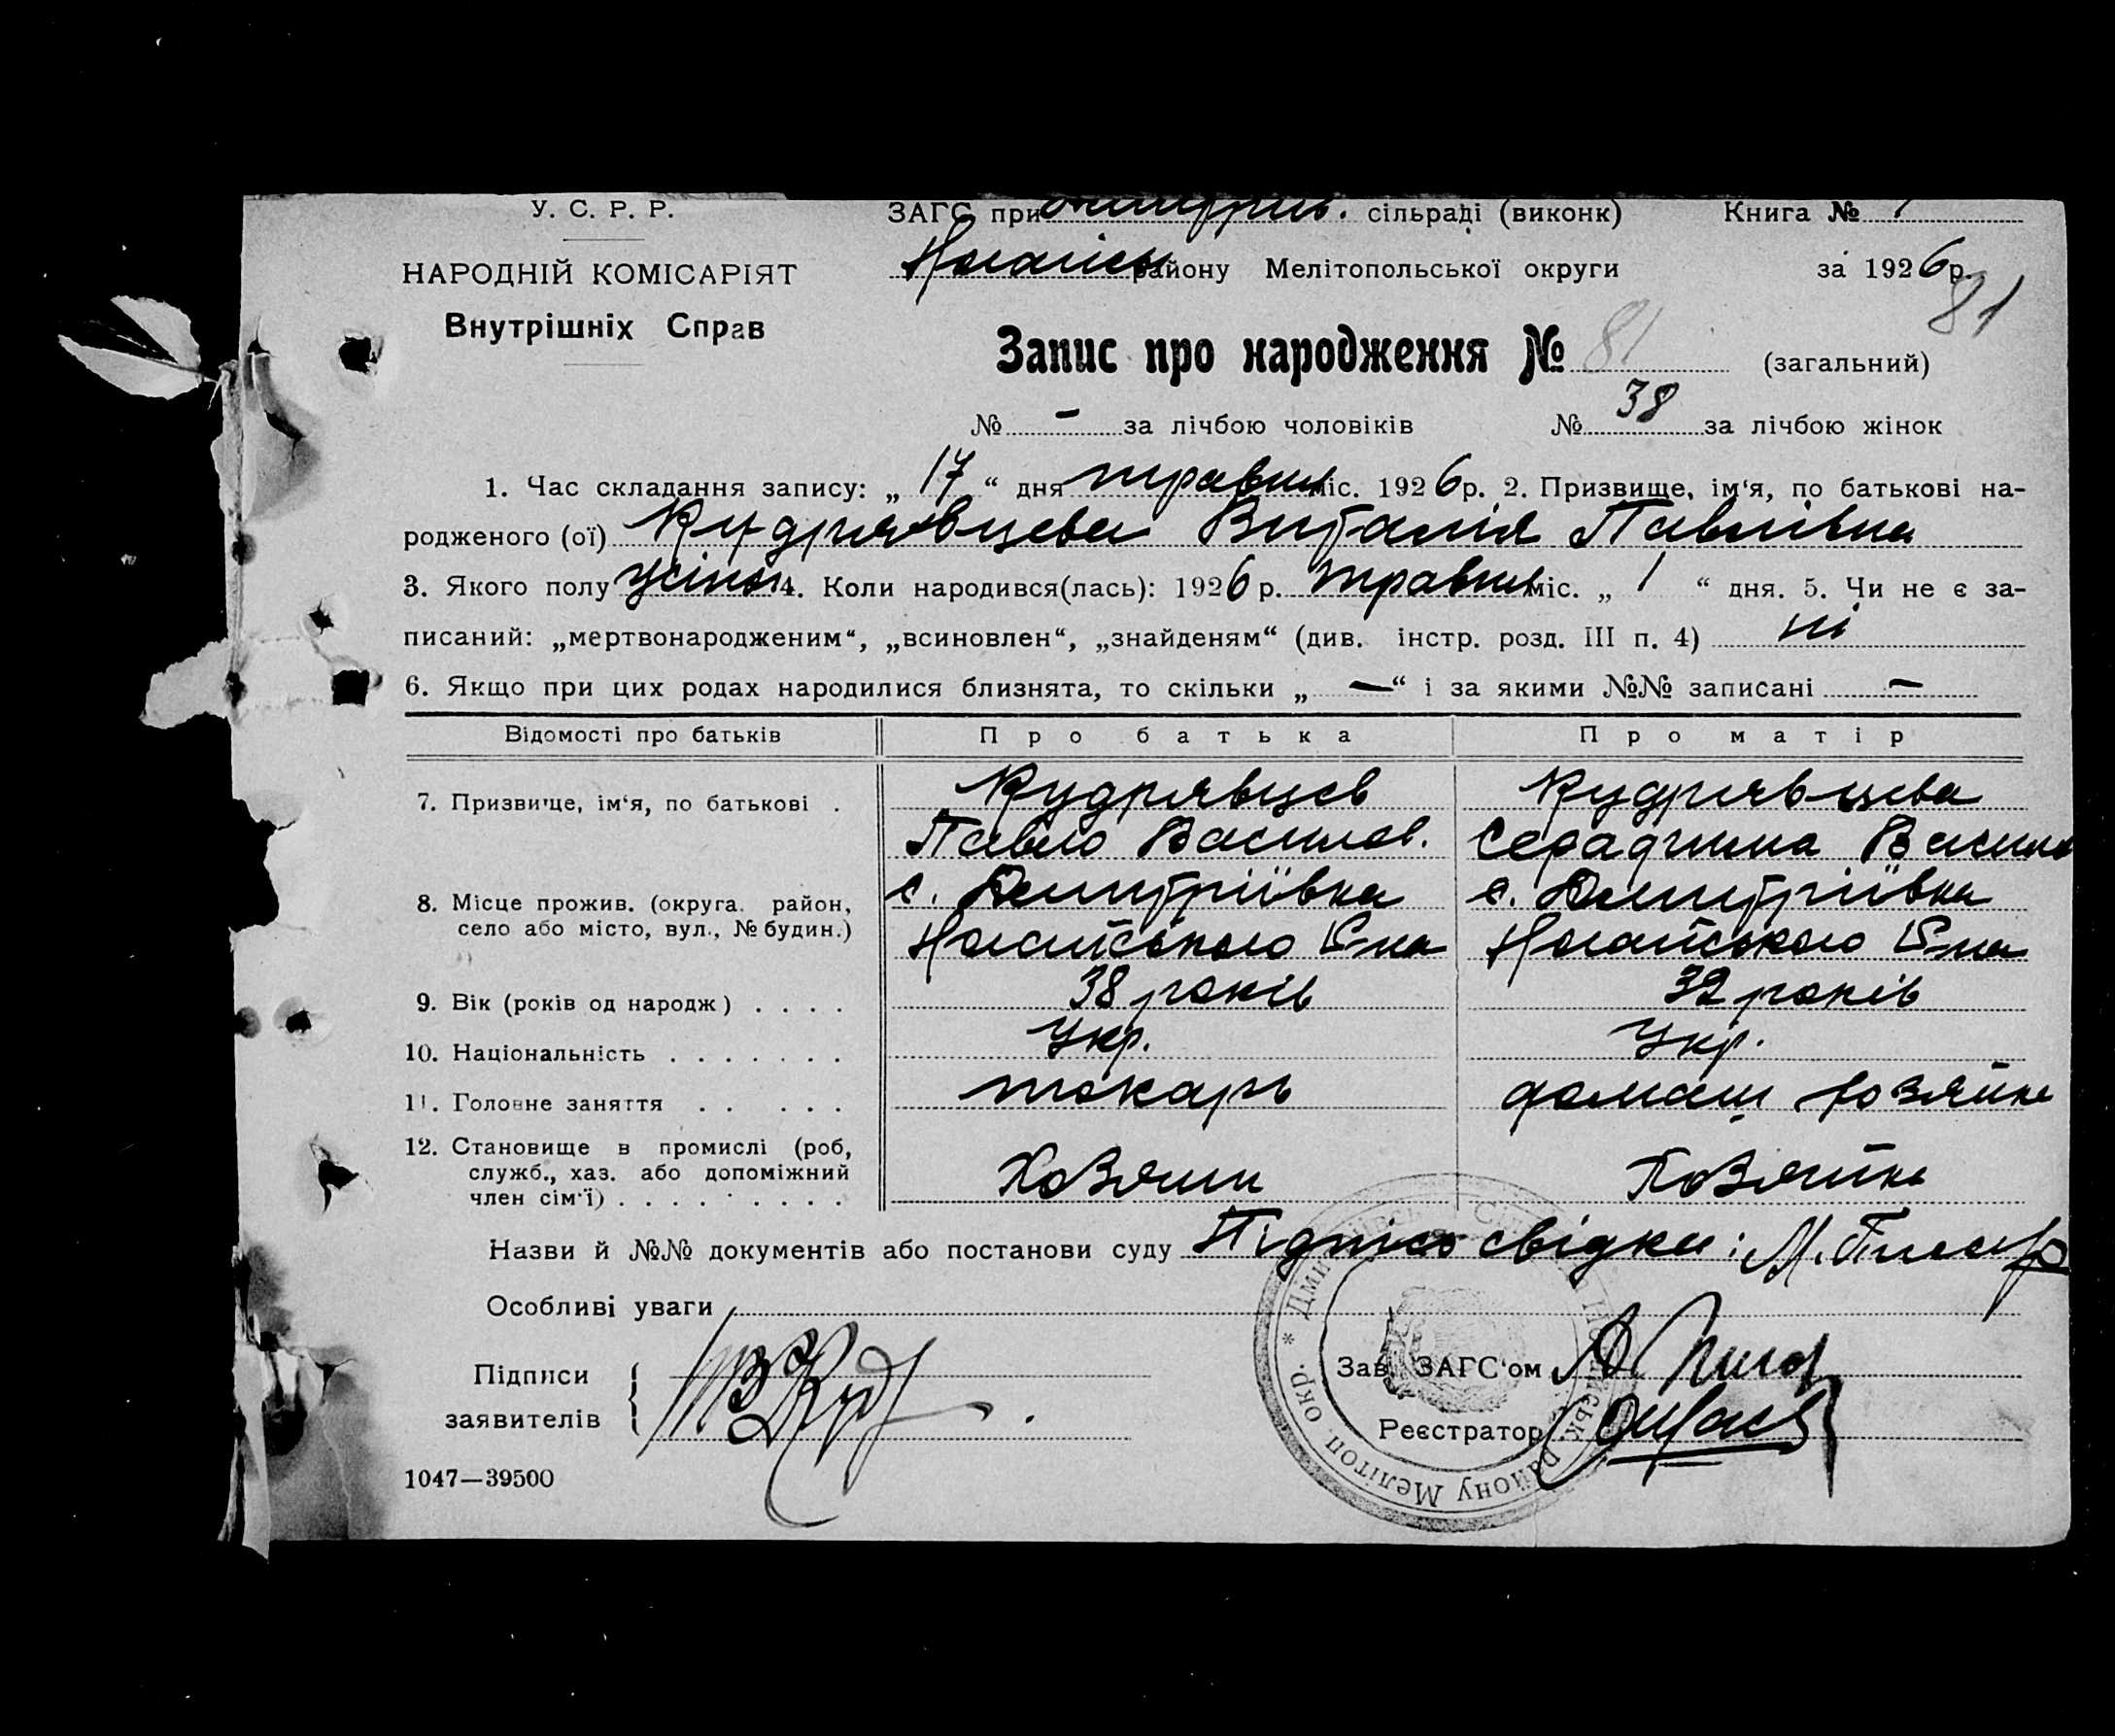 У. С. Р. Р.
НАРОДНІЙ КОМІСАРІЯТ
Внутрішніх Справ
ЗАГС при сільраді (виконк) Книга №
району Мелітопольської округи за 1926р.
81
Запис про народження № 81 (загальний)
№ – за лічбою чоловіків № 38 за лічбою жінок
1. Час складання запису: „ 17 “ дня травня міс. 1926р. 2. Призвище, ім‘я, по батькові на-
родженого (ої) Кудрявцева Виталія Павлівна
3. Якого полу жіноч 4. Коли народився(лась): 1926р. травня міс. „ 1 “ дня. 5. Чи не є за-
писаний: „мертвонародженим“, „всиновлен“, „знайденям“ (див. інстр. розд. III п. 4) ні
6. Якщо при цих родах народилися близнята, то скільки „ — “ і за якими №№ записані –
Відомості про батьків Про батька Про матір
7. Призвище, ім‘я, по батькові . Кудрявцев Кудрявцева
Павло Василов. Василів
8. Місце прожив. (округа. район, с. Дмитріївка с. Дмитріївка
село або місто, вул., № будин.) Ногайського Р-на Ногайського Р-на
9. Вік (років од народж) . . . . 38 років 32 років
10. Національність . . . . . . . Укр. Укр.
11. Головне заняття . . . . . токарь домаш хозяйка
12. Становище в промислі (роб,
служб., хаз. або допоміжний Хозяин Хозяйка
член сім‘ї) . . . . . . . . .
Назви й №№ документів або постанови суду Підпісь свідка: М.
Особливі уваги
Підписи
заявителів
Зав. ЗАГС‘ом
Реєстратор
1047—39500